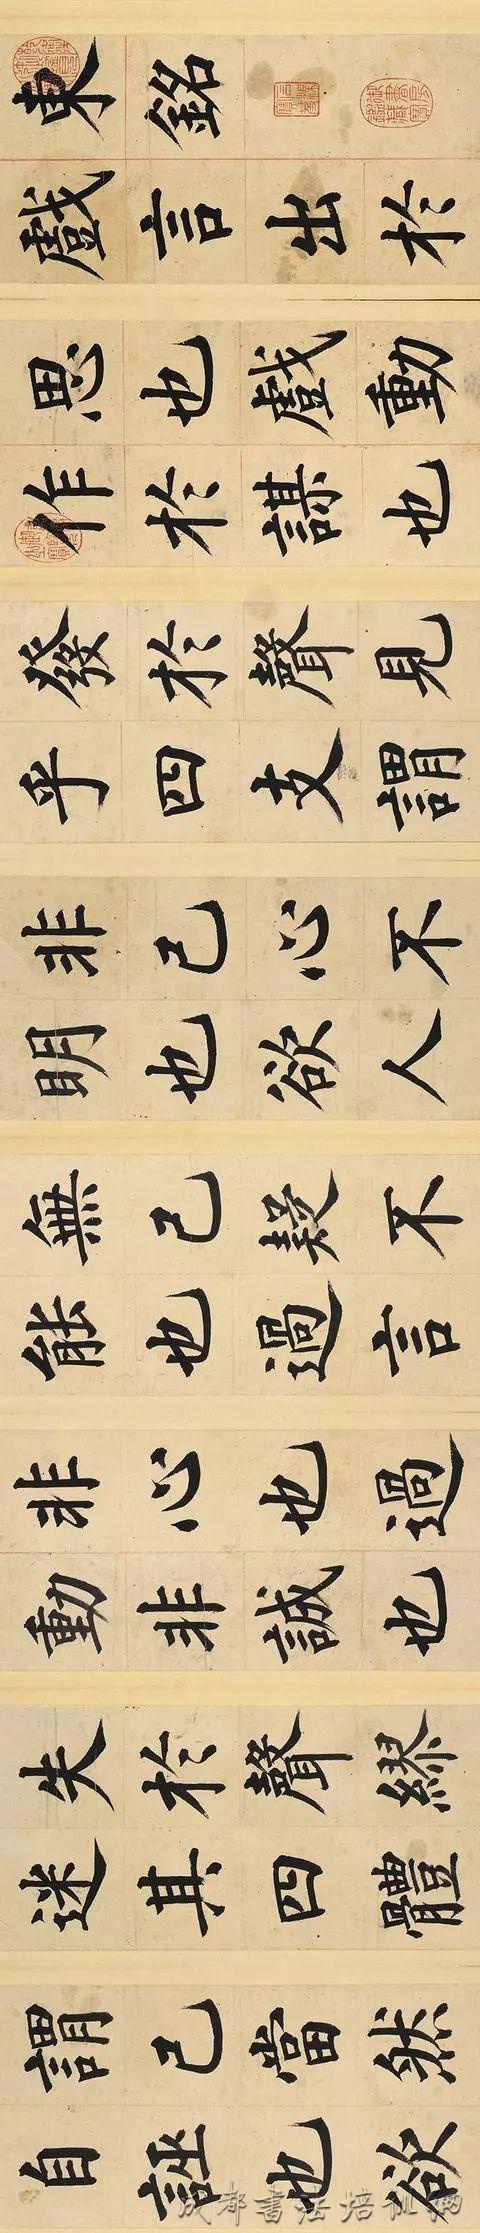 東銘
戲言出於
思也戲動
作於謀也
發於聲見
乎四支謂
非己心不
明也欲人
無己疑不
能也過言
非心也過
動非誠也
失於聲繆
迷其四體
謂己當然
自誣也欲
成都書法培训网